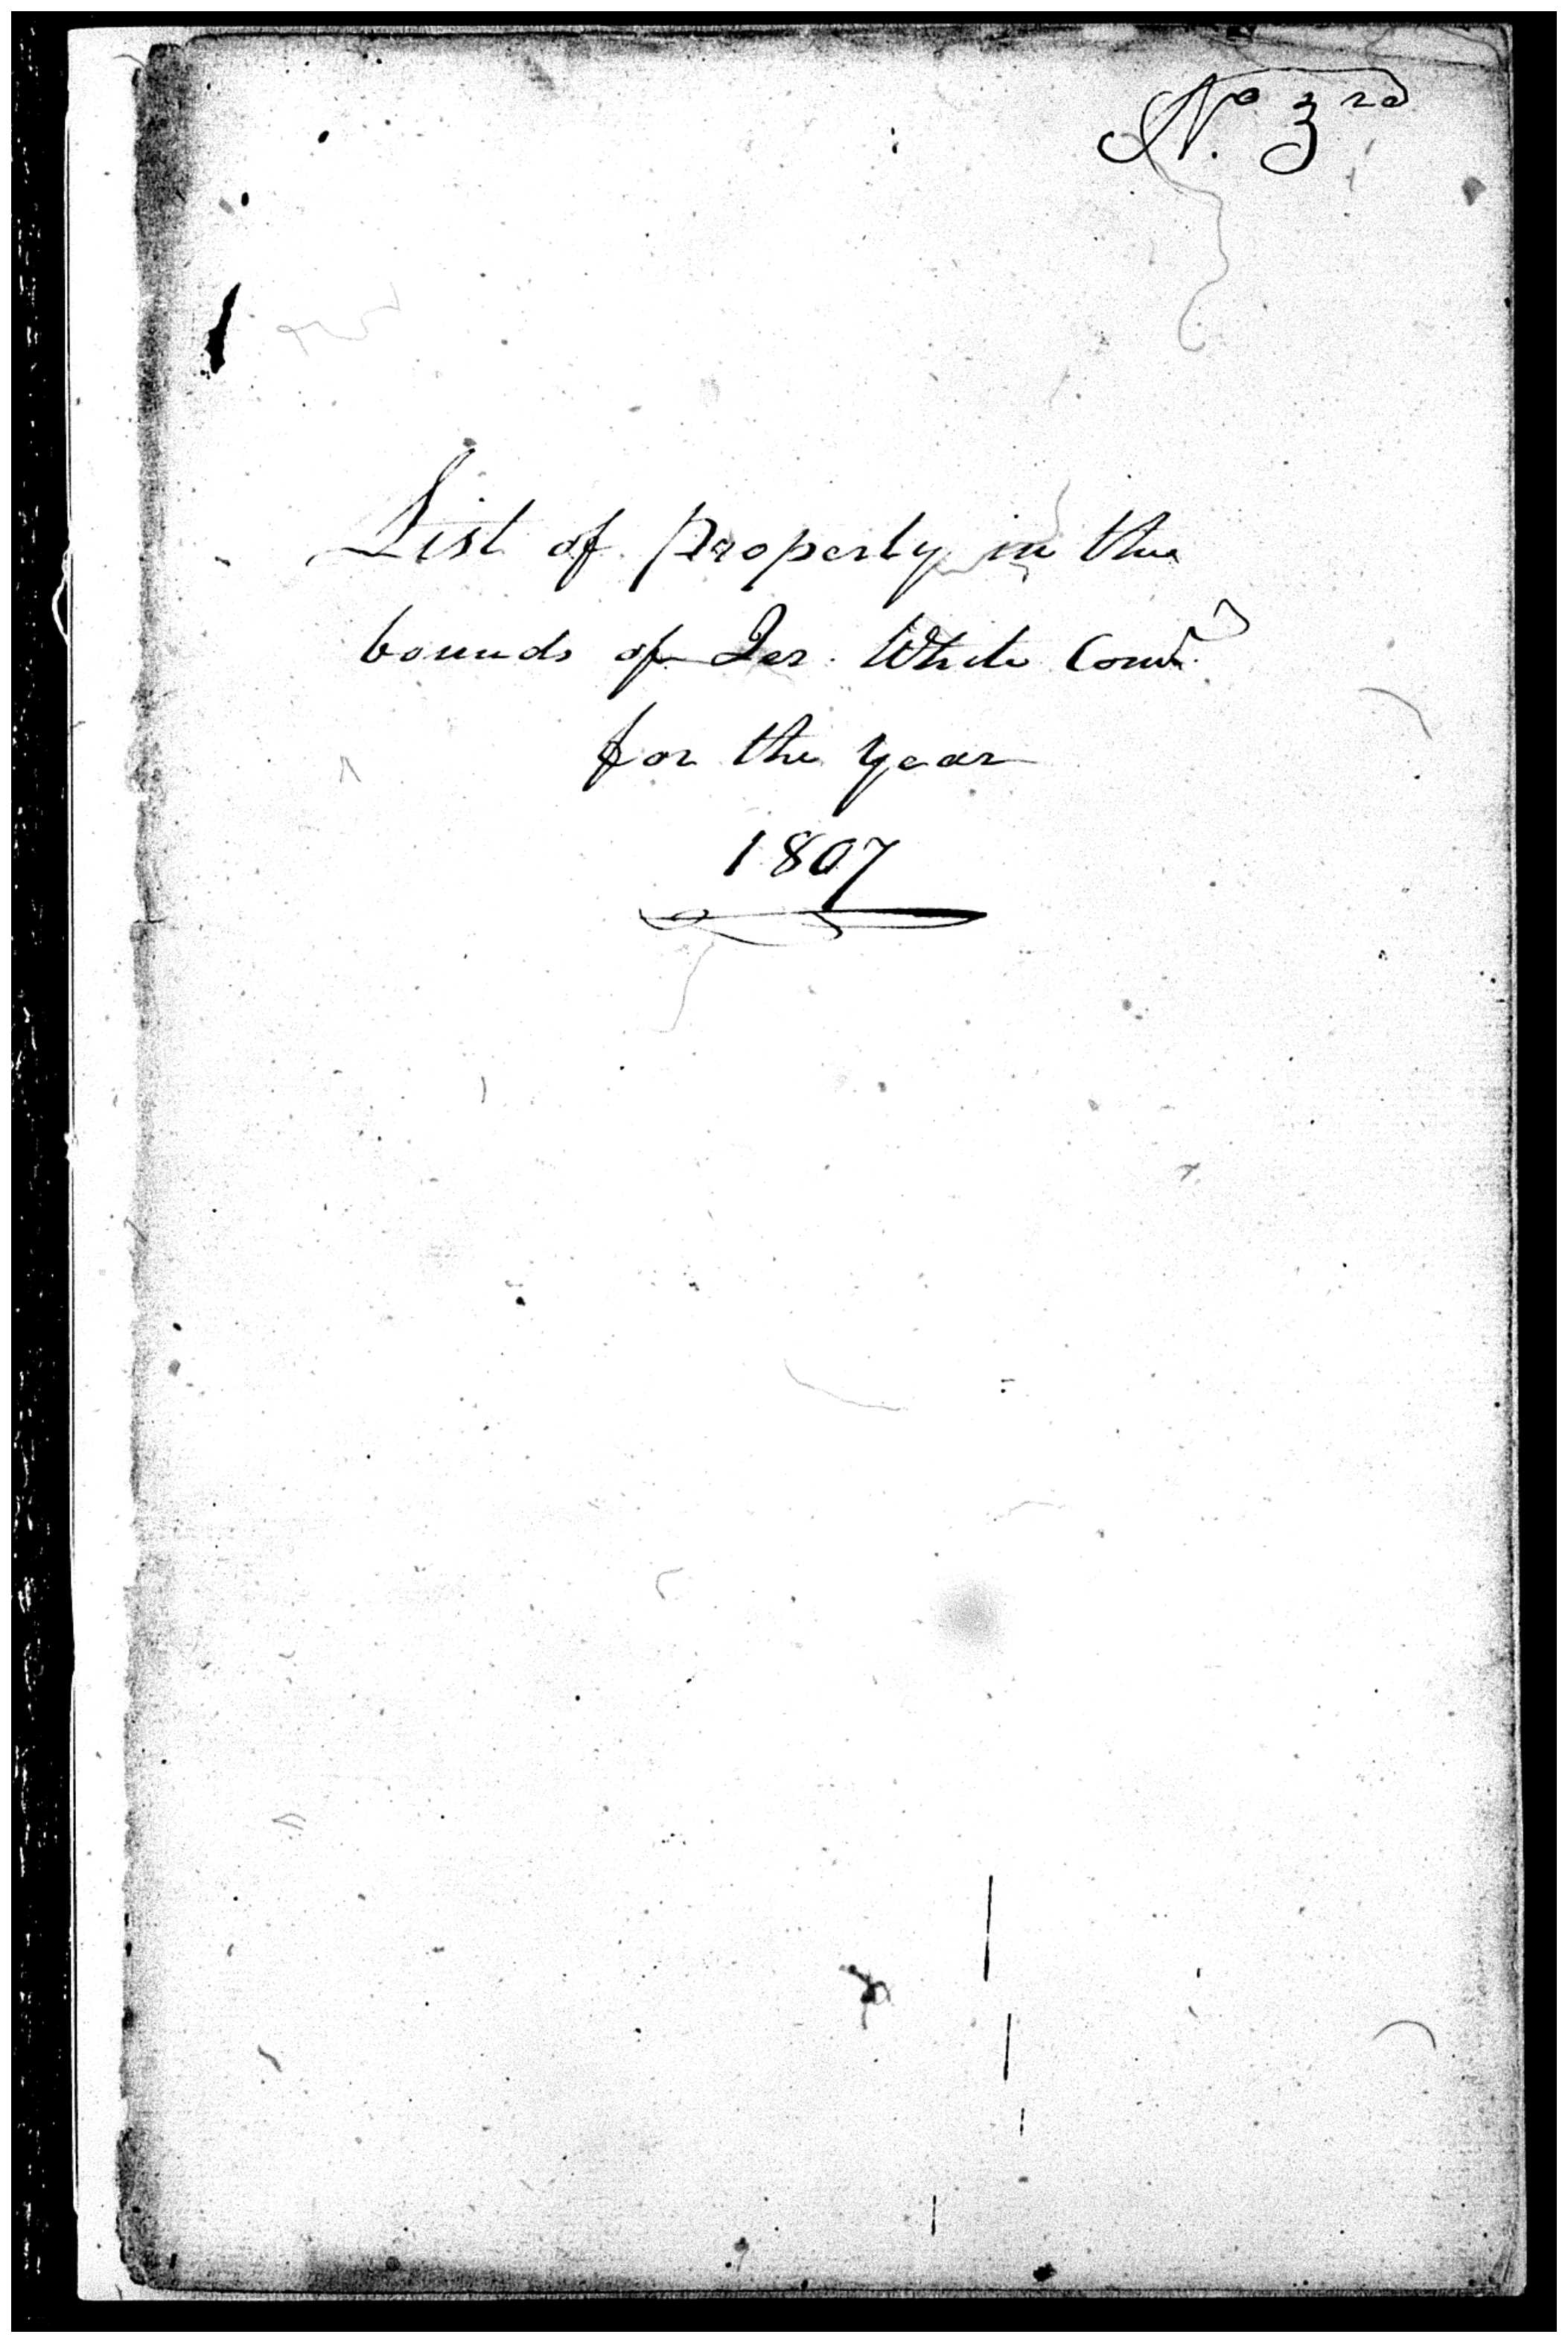 No. 3rd
List of property in the
bounds of White
for the year
1807